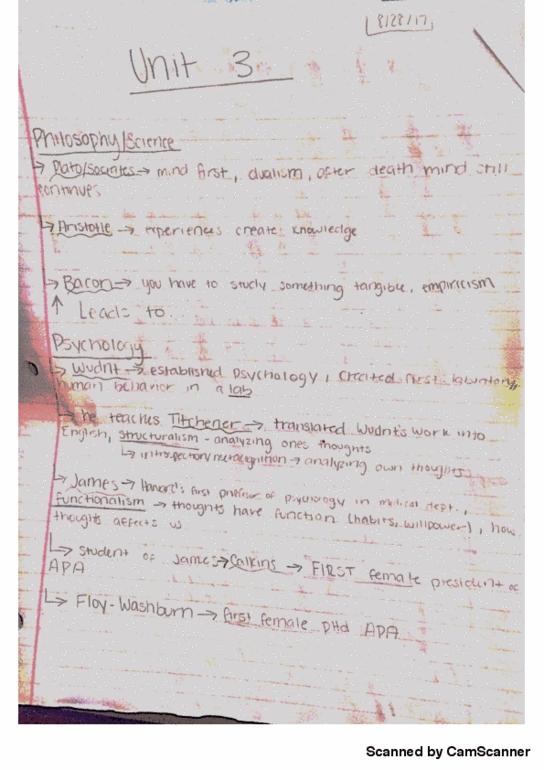 8/28/17
Unit 3
Philosophy/Science
→ Plato/Socrates → mind first, dualism, after death mind still
continues
→ Aristotle → experiences create knowledge
→ Bacon → you have to study something tangible, empiricism
↑ Leads to
Psychology
→ Wudnt → established psychology, created first laboratory,
human behavior in a lab
→ he teaches Titchener → translated Wudnt's work into
English, structuralism - analyzing ones thoughts
→ analyzing own thoughts
→ James → first professor of psychology in medical dept.,
functionalism → thoughts have function (habits, willpower), how
thoughts affects us
→ student of James → Calkins → FIRST female president of
APA
→ Floy-Washburn → first female PHd APA
Scanned by CamScanner